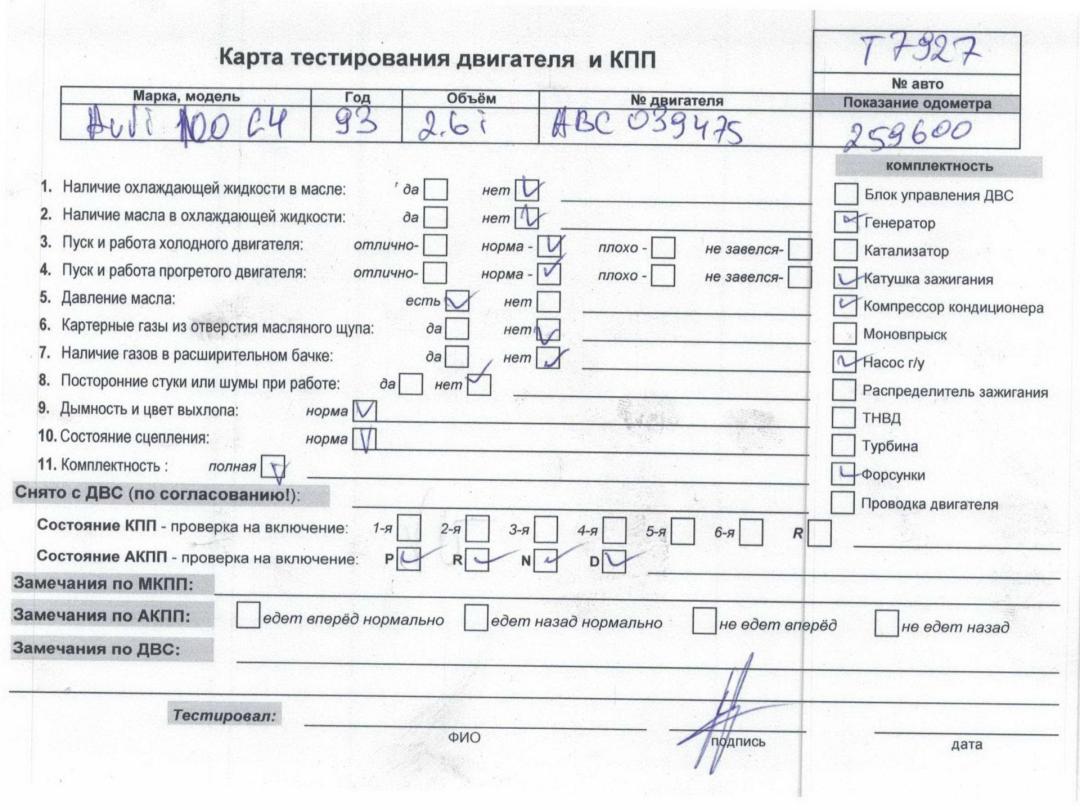 Т 7927
Карта тестирования двигателя и КПП
№ авто
Марка, модель Год Объём № двигателя Показание одометра
Audi 100 C4 93 2.6 i ABC 039475 259600
комплектность
1. Наличие охлаждающей жидкости в масле: да нет
Блок управления ДВС
2. Наличие масла в охлаждающей жидкости: да нет
Генератор
3. Пуск и работа холодного двигателя: отлично- норма - плохо - не завелся-
Катализатор
4. Пуск и работа прогретого двигателя: отлично- норма - плохо - не завелся-
Катушка зажигания
5. Давление масла: есть нет
Компрессор кондиционера
6. Картерные газы из отверстия масляного щупа: да нет
Моновпрыск
7. Наличие газов в расширительном бачке: да нет
Насос г/у
8. Посторонние стуки или шумы при работе: да нет
Распределитель зажигания
9. Дымность и цвет выхлопа: норма
ТНВД
10. Состояние сцепления: норма
Турбина
11. Комплектность : полная
Форсунки
Снято с ДВС (по согласованию!):
Проводка двигателя
Состояние КПП - проверка на включение: 1-я 2-я 3-я 4-я 5-я 6-я R
Состояние АКПП - проверка на включение: P R N D
Замечания по МКПП:
Замечания по АКПП: едет вперёд нормально едет назад нормально не едет вперёд не едет назад
Замечания по ДВС:
Тестировал:
ФИО подпись дата